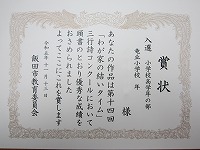 賞状
入選 小学校高学年の部
竜丘小学校 年
様
あなたの作品は第十四回
「わが家の結いタイム」
三行詩コンクールにおいて
頭書のとおり優秀な成績を
おさめられました
よってここにこれを賞します
令和五年十一月十三日
飯田市教育委員会